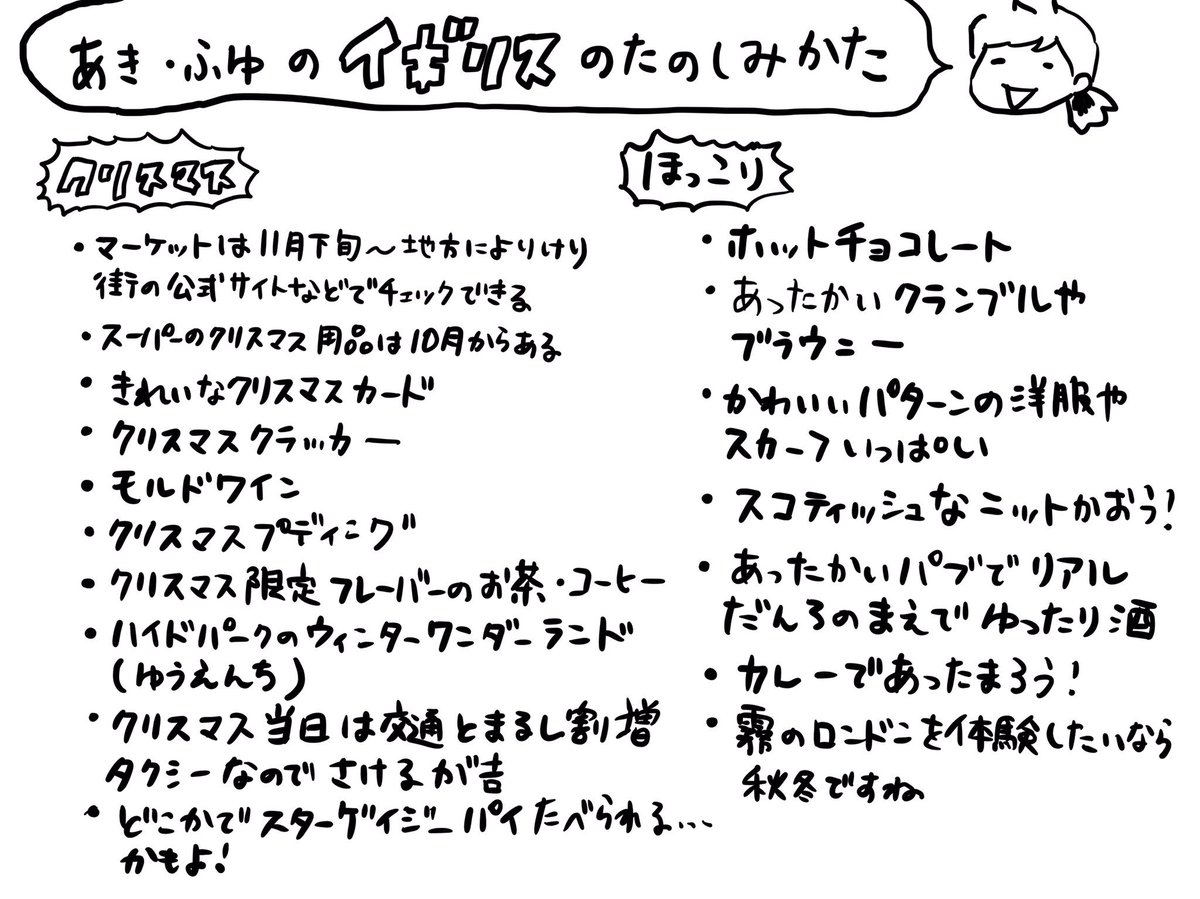 あき・ふゆのイギリスのたのしみかた
クリスマス
・マーケットは11月下旬〜地方によりけり
街の公式サイトなどでチェックできる
・スーパーのクリスマス用品は10月からある
・きれいなクリスマスカード
・クリスマスクラッカー
・モルドワイン
・クリスマスプディング
・クリスマス限定フレーバーのお茶・コーヒー
・ハイドパークのウィンターワンダーランド
(ゆうえんち)
・クリスマス当日は交通とまるし割増
タクシーなのでさけるが吉
・どこかでスターゲイジーパイたべられる...
かもよ!
ほっこり
・ホットチョコレート
・あったかいクランブルや
ブラウニー
・かわいいパターンの洋服や
スカーフいっぱい
・スコティッシュなニットかおう!
・あったかいパブでリアル
だんろのまえでゆったり酒
・カレーであったまろう!
・霧のロンドンを体験したいなら
秋冬ですね